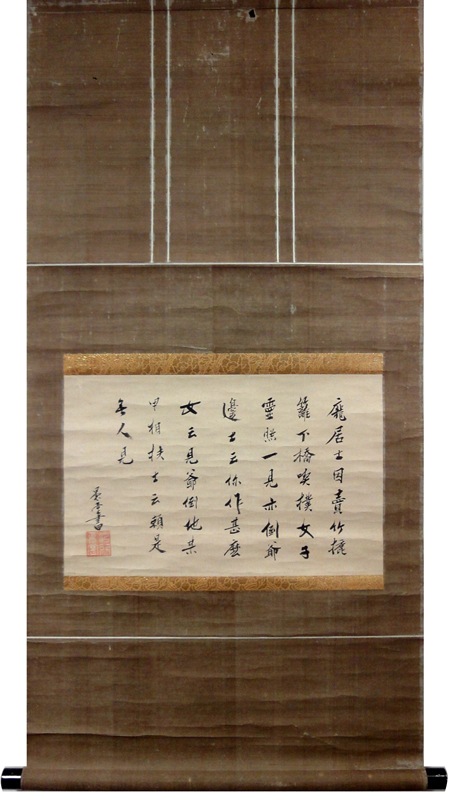 龐居士因賣竹漉
籬下橋喫撲女子
靈照一見亦倒爺
邊士云你作甚麼
女云見爺倒地某
甲相扶士云頼是
無人見